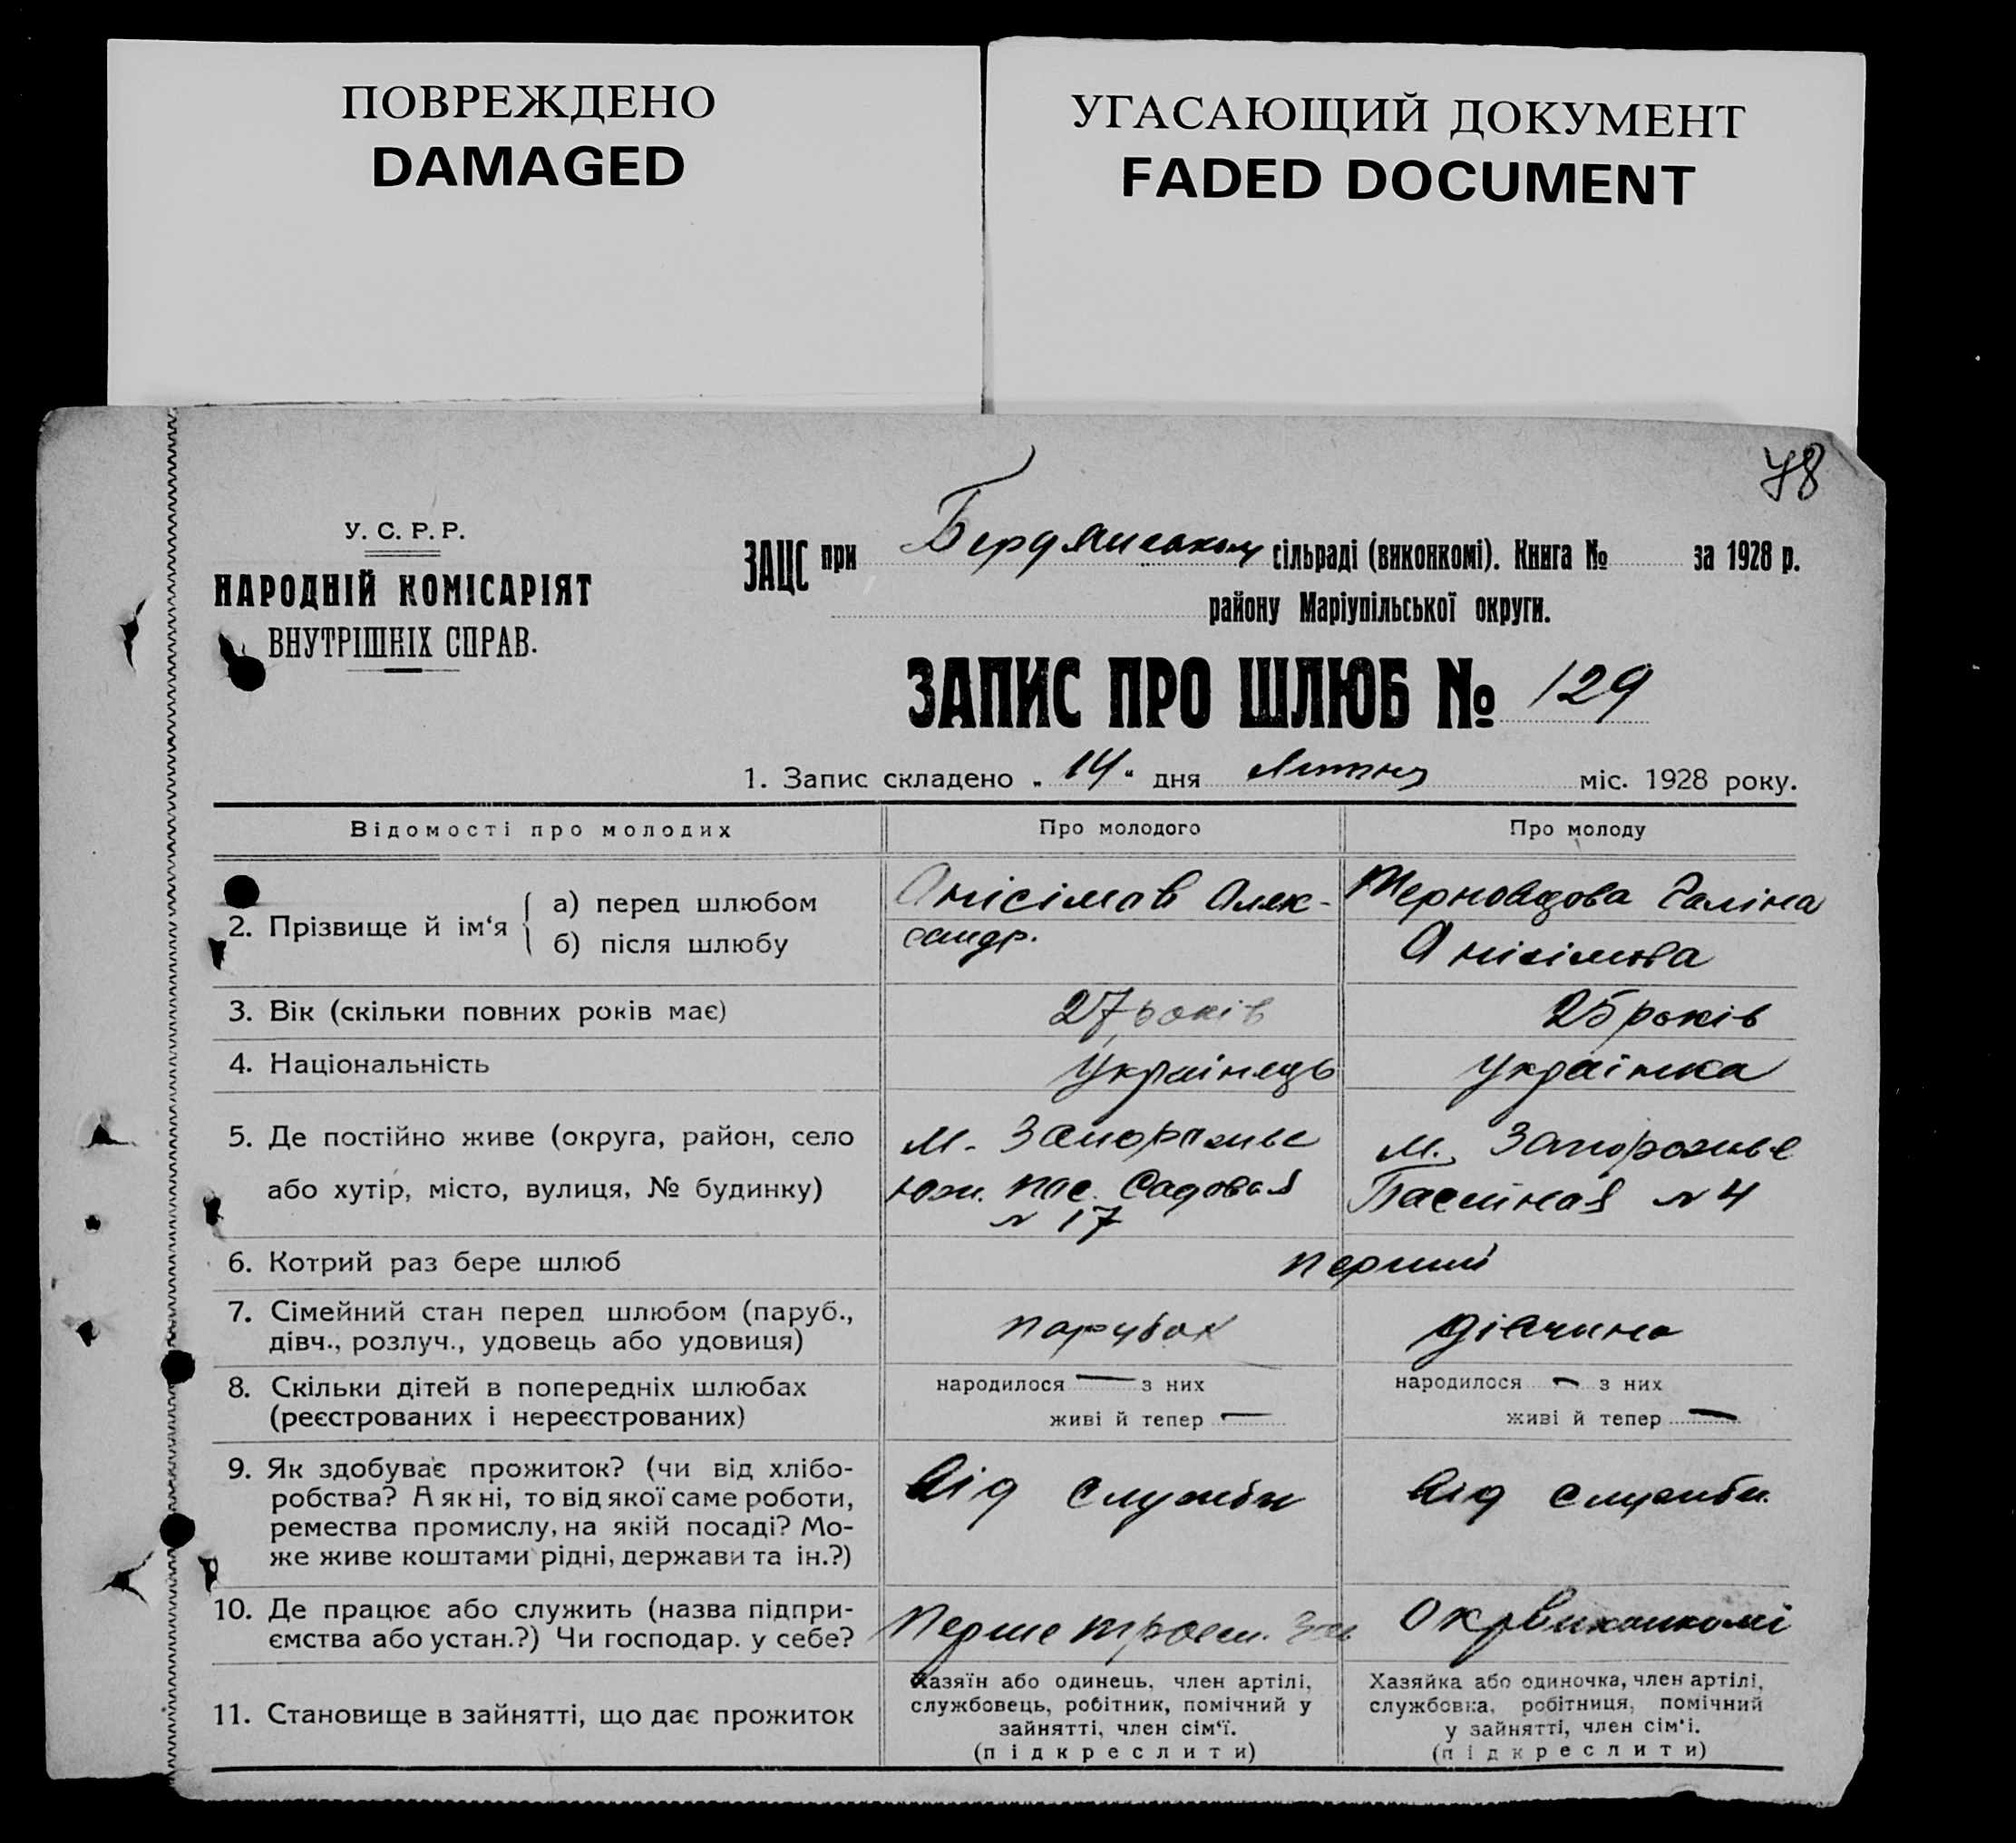 ПОВРЕЖДЕНО
DAMAGED
УГАСАЮЩИЙ ДОКУМЕНТ
FADED DOCUMENT
78
У. С. Р. Р.
НАРОДНІЙ КОМІСАРІЯТ
ВНУТРІШНІХ СПРАВ.
ЗАЦС при Бердянському сільраді (виконкомі). Книга № за 1928 р.
району Маріупільської округи.
ЗАПИС ПРО ШЛЮБ № 129
1. Запис складено „ 14 “ дня Лютня міс. 1928 року.
Відомості про молодих
Про молодого
Про молоду
2. Прізвище й ім‘я
а) перед шлюбом
б) після шлюбу
Анісімов Олек-
сандр.
Галіна
Анісімова
3. Вік (скільки повних років має)
27 років
25 років
4. Національність
Українець
Українка
5. Де постійно живе (округа, район, село
або хутір, місто, вулиця, № будинку)
М. Запорожье
Юж. пос. Садовая
№ 17
М. Запорожье
№ 4
6. Котрий раз бере шлюб
перший
7. Сімейний стан перед шлюбом (паруб.,
дівч., розлуч., удовець або удовиця)
парубок
дівчина
8. Скільки дітей в попередніх шлюбах
(реєстрованих і нереєстрованих)
народилося — з них
живі й тепер —
народилося — з них
живі й тепер —
9. Як здобуває прожиток? (чи від хлібо-
робства? А як ні, то від якої саме роботи,
ремества промислу, на якій посаді? Мо-
же живе коштами рідні, держави та ін.?)
від служби
від служби.
10. Де працює або служить (назва підпри-
ємства або устан.?) Чи господар. у себе?
Перше
Окрвиконкомі
11. Становище в зайнятті, що дає прожиток
Хазяїн або одинець, член артілі,
службовець, робітник, помічний у
зайнятті, член сім‘ї.
(підкреслити)
Хазяйка або одиночка, член артілі,
службовка, робітниця, помічний
у зайнятті, член сім‘і.
(підкреслити)